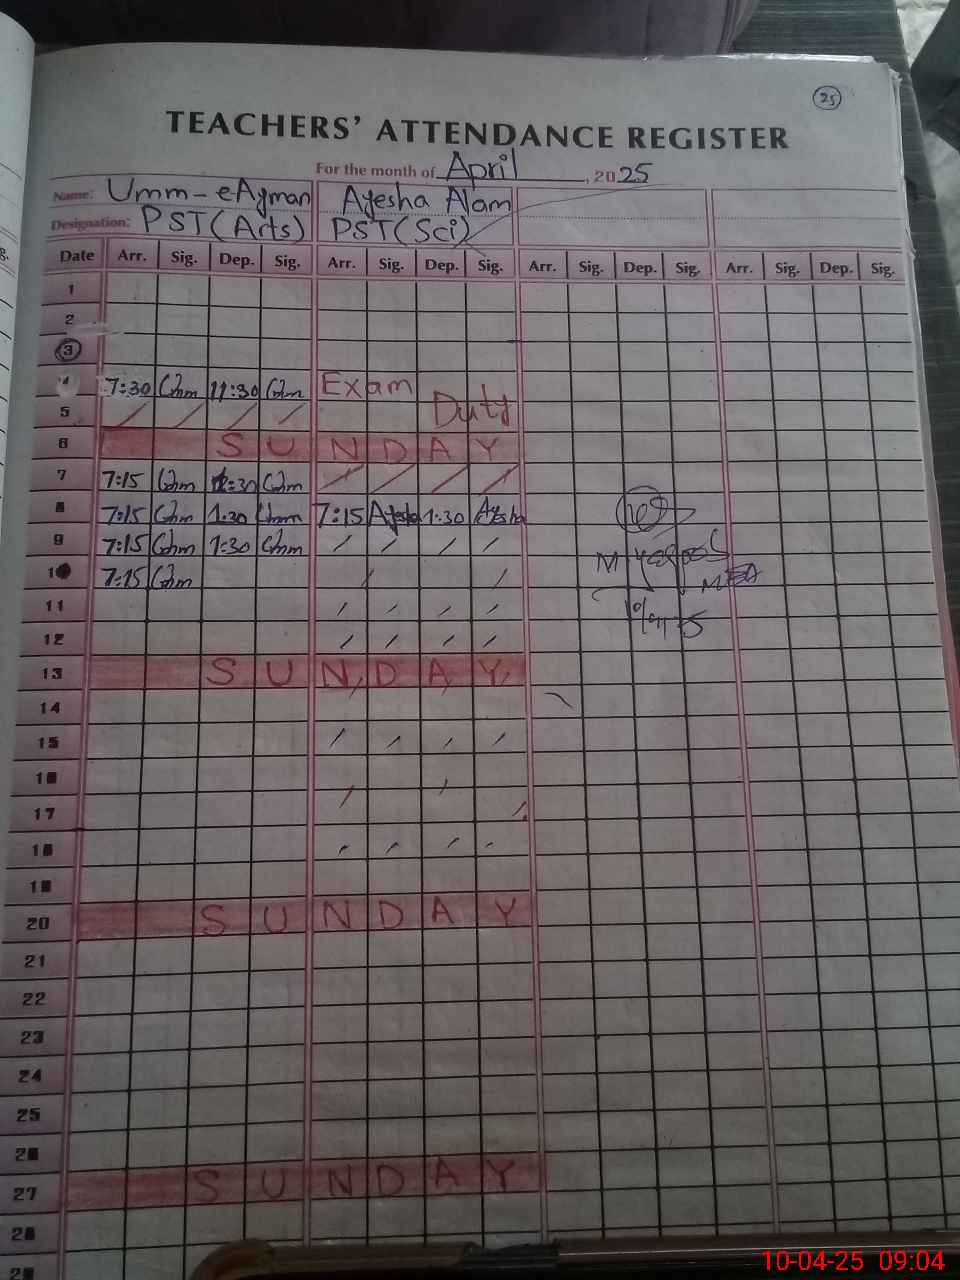 25
TEACHERS' ATTENDANCE REGISTER
For the month of April, 2025
Name: Umm-eAyman Ayesha Alam
Designation: PST(Arts) PST(Sci)
Date Arr. Sig. Dep. Sig. Arr. Sig. Dep. Sig. Arr. Sig. Dep. Sig. Arr. Sig. Dep. Sig.
1
2
3
4 7:30 11:30 Exam
5 Duty
6 SUNDAY
7 7:15
8 7:15 1:30 7:15 Ayesha 1:30 Ayesha
9 7:15 1:30
10 7:15
11
12
13 SUNDAY
14
15
16
17
18
19
20 SUNDAY
21
22
23
24
25
26
27 SUNDAY
28
10-04-25 09:04